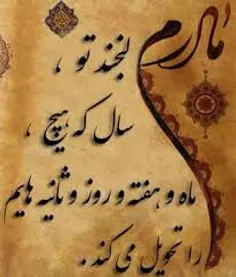 مادرم لبخند تو ،
سال که هیچ ،
ماه و هفته و روز و ثانیه هایم
را تحویل می کند .